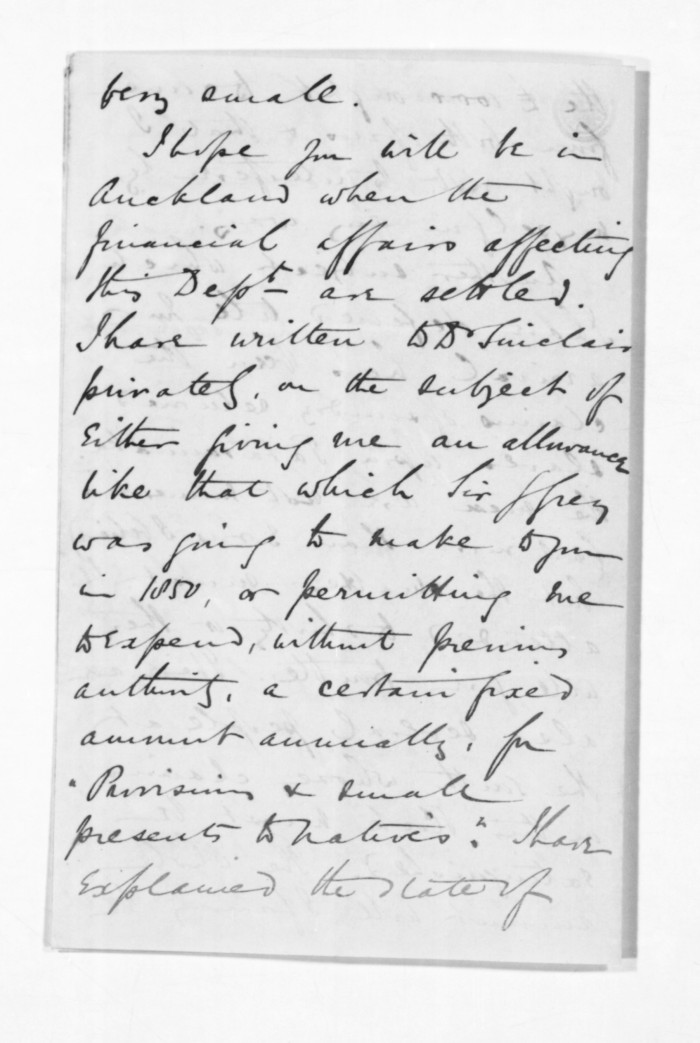 very small.
I hope you will be in
Auckland when the
financial affairs affecting
this Dept. are settled.
I have written to Dr Sinclair
privately, on the subject of
Either giving me an allowance
like that which Sir G Grey
was going to make to you
in 1850, or permitting me
to expend, without previous
authority, a certain fixed
amount annually, for
"Provisions & small
presents to natives". I have
Explained the state of